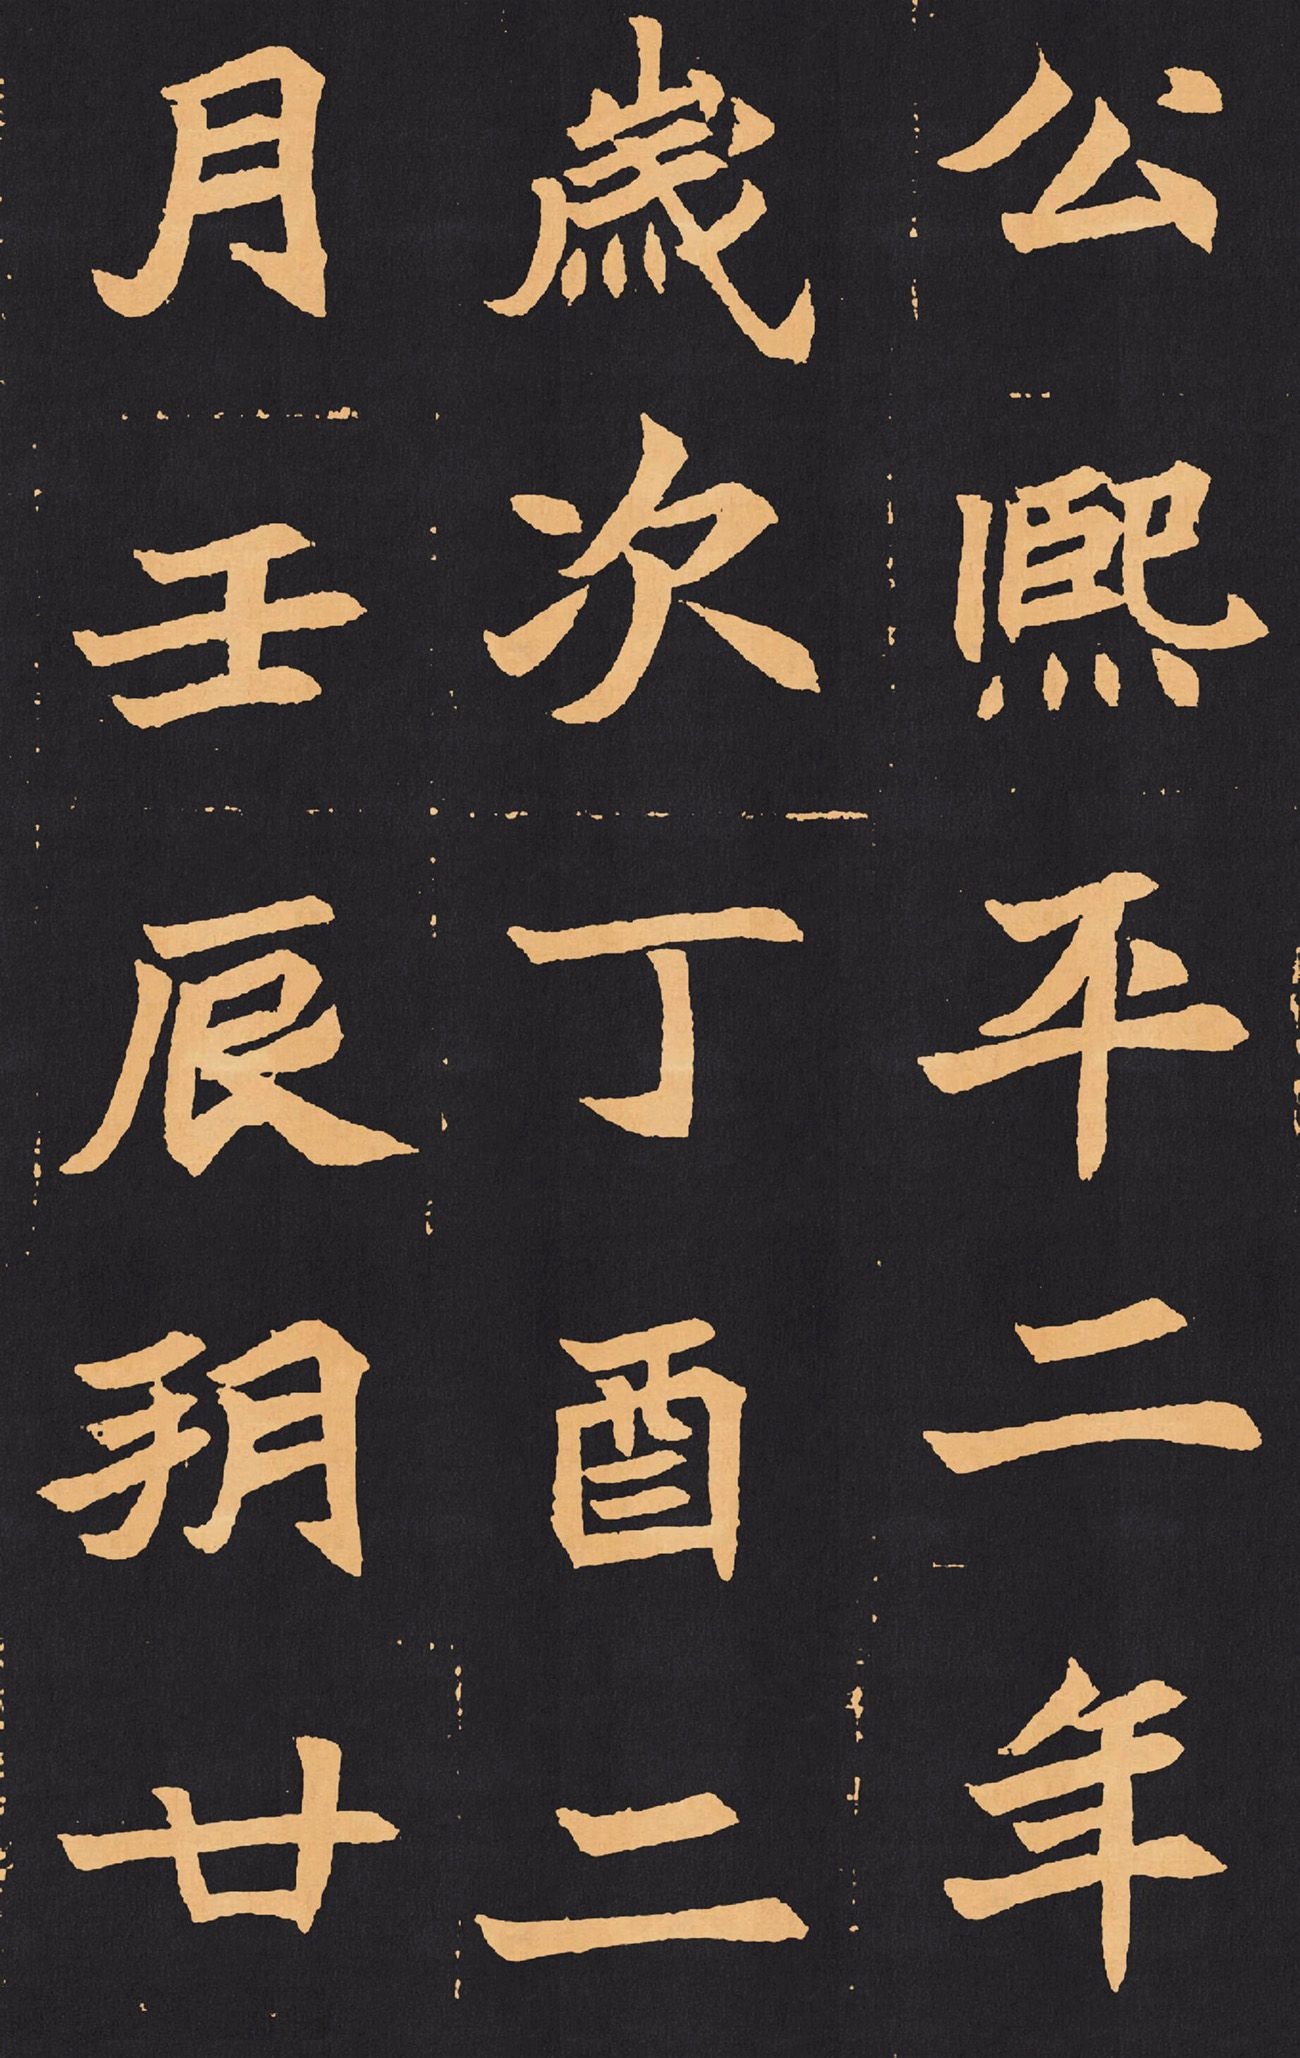 公熙平二年
歲次丁酉二
月壬辰朔廿